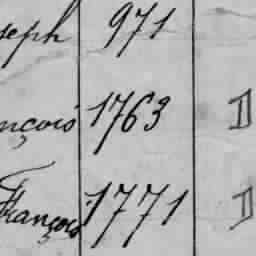 seph 971
nçois 1763 D
François 1771 D